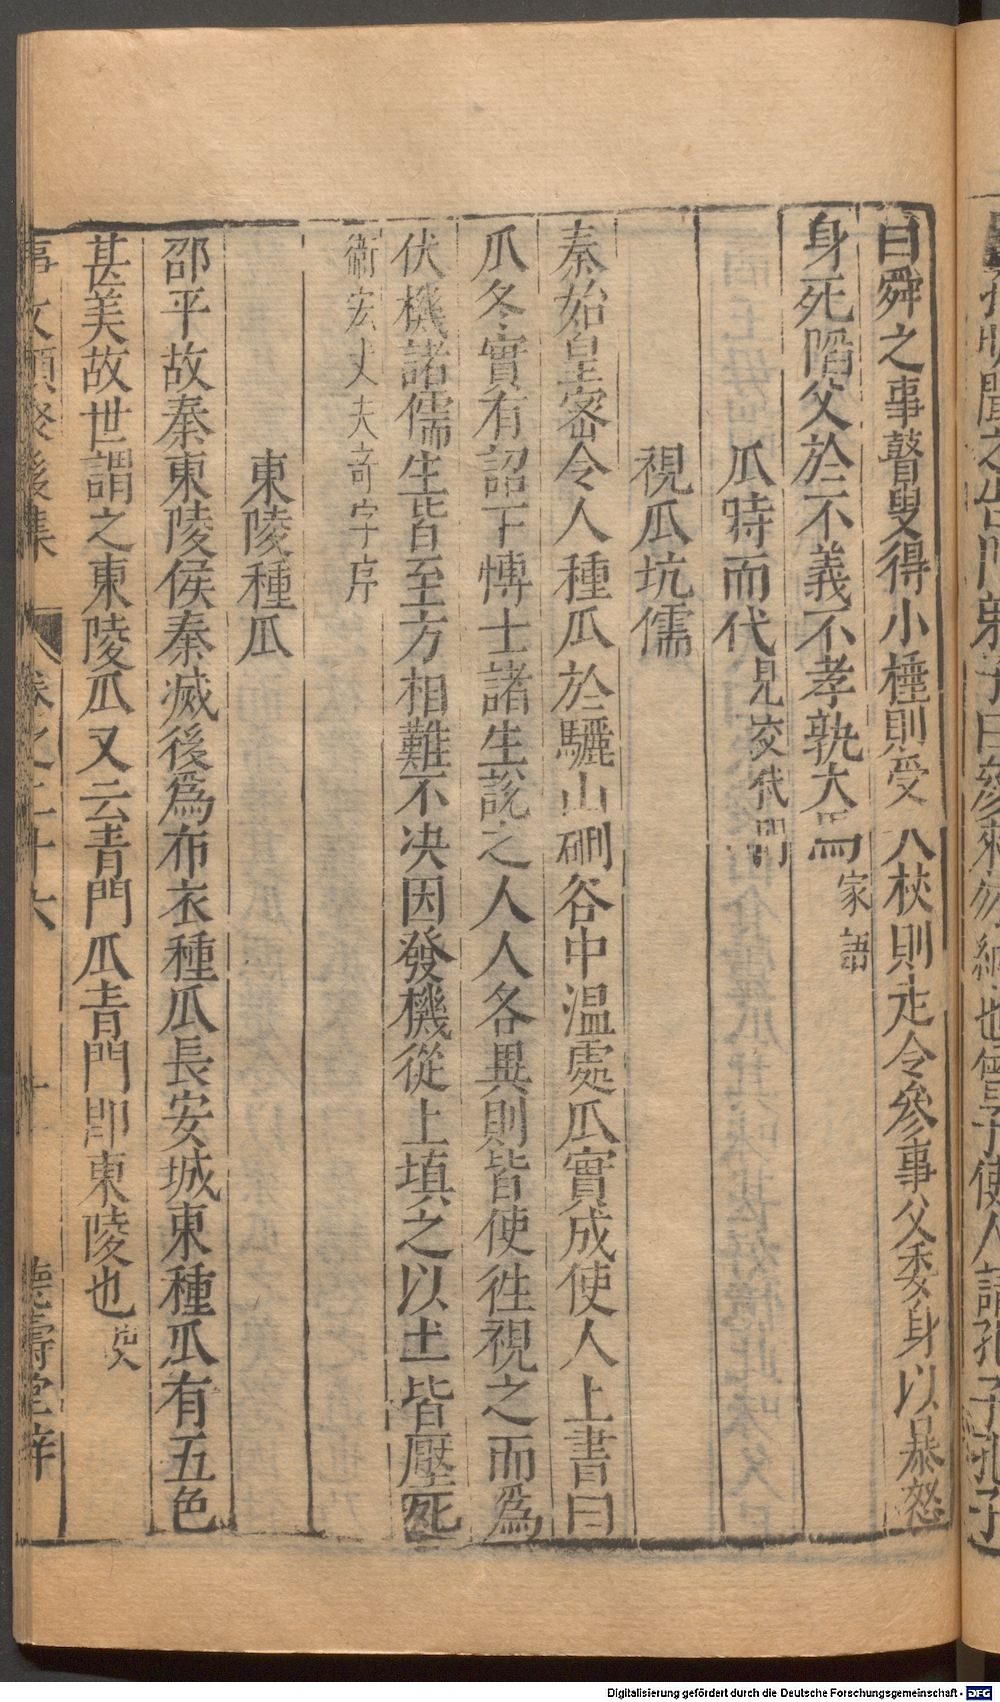 曰舜之事瞽叟得小棰則受八杖則走令參事父委身以暴怒
身死陷父於不義不孝孰大焉家語
瓜時而代見交代門
視瓜坑儒
秦始皇密令人種瓜於驪山硎谷中温處瓜實成使人上書曰
瓜冬實有詔下博士諸生說之人人各異則皆使徃視之而為
伏機諸儒生皆至方相難不决因發機從上填之以土皆壓死
衛宏丈夫奇字序
東陵種瓜
邵平故秦東陵侯秦滅後為布衣種瓜長安城東種瓜有五色
甚美故世謂之東陵瓜又云青門瓜青門即東陵也史
事文類聚後集 卷之二十六 十一 德壽堂梓
Digitalisierung gefördert durch die Deutsche Forschungsgemeinschaft - DFG